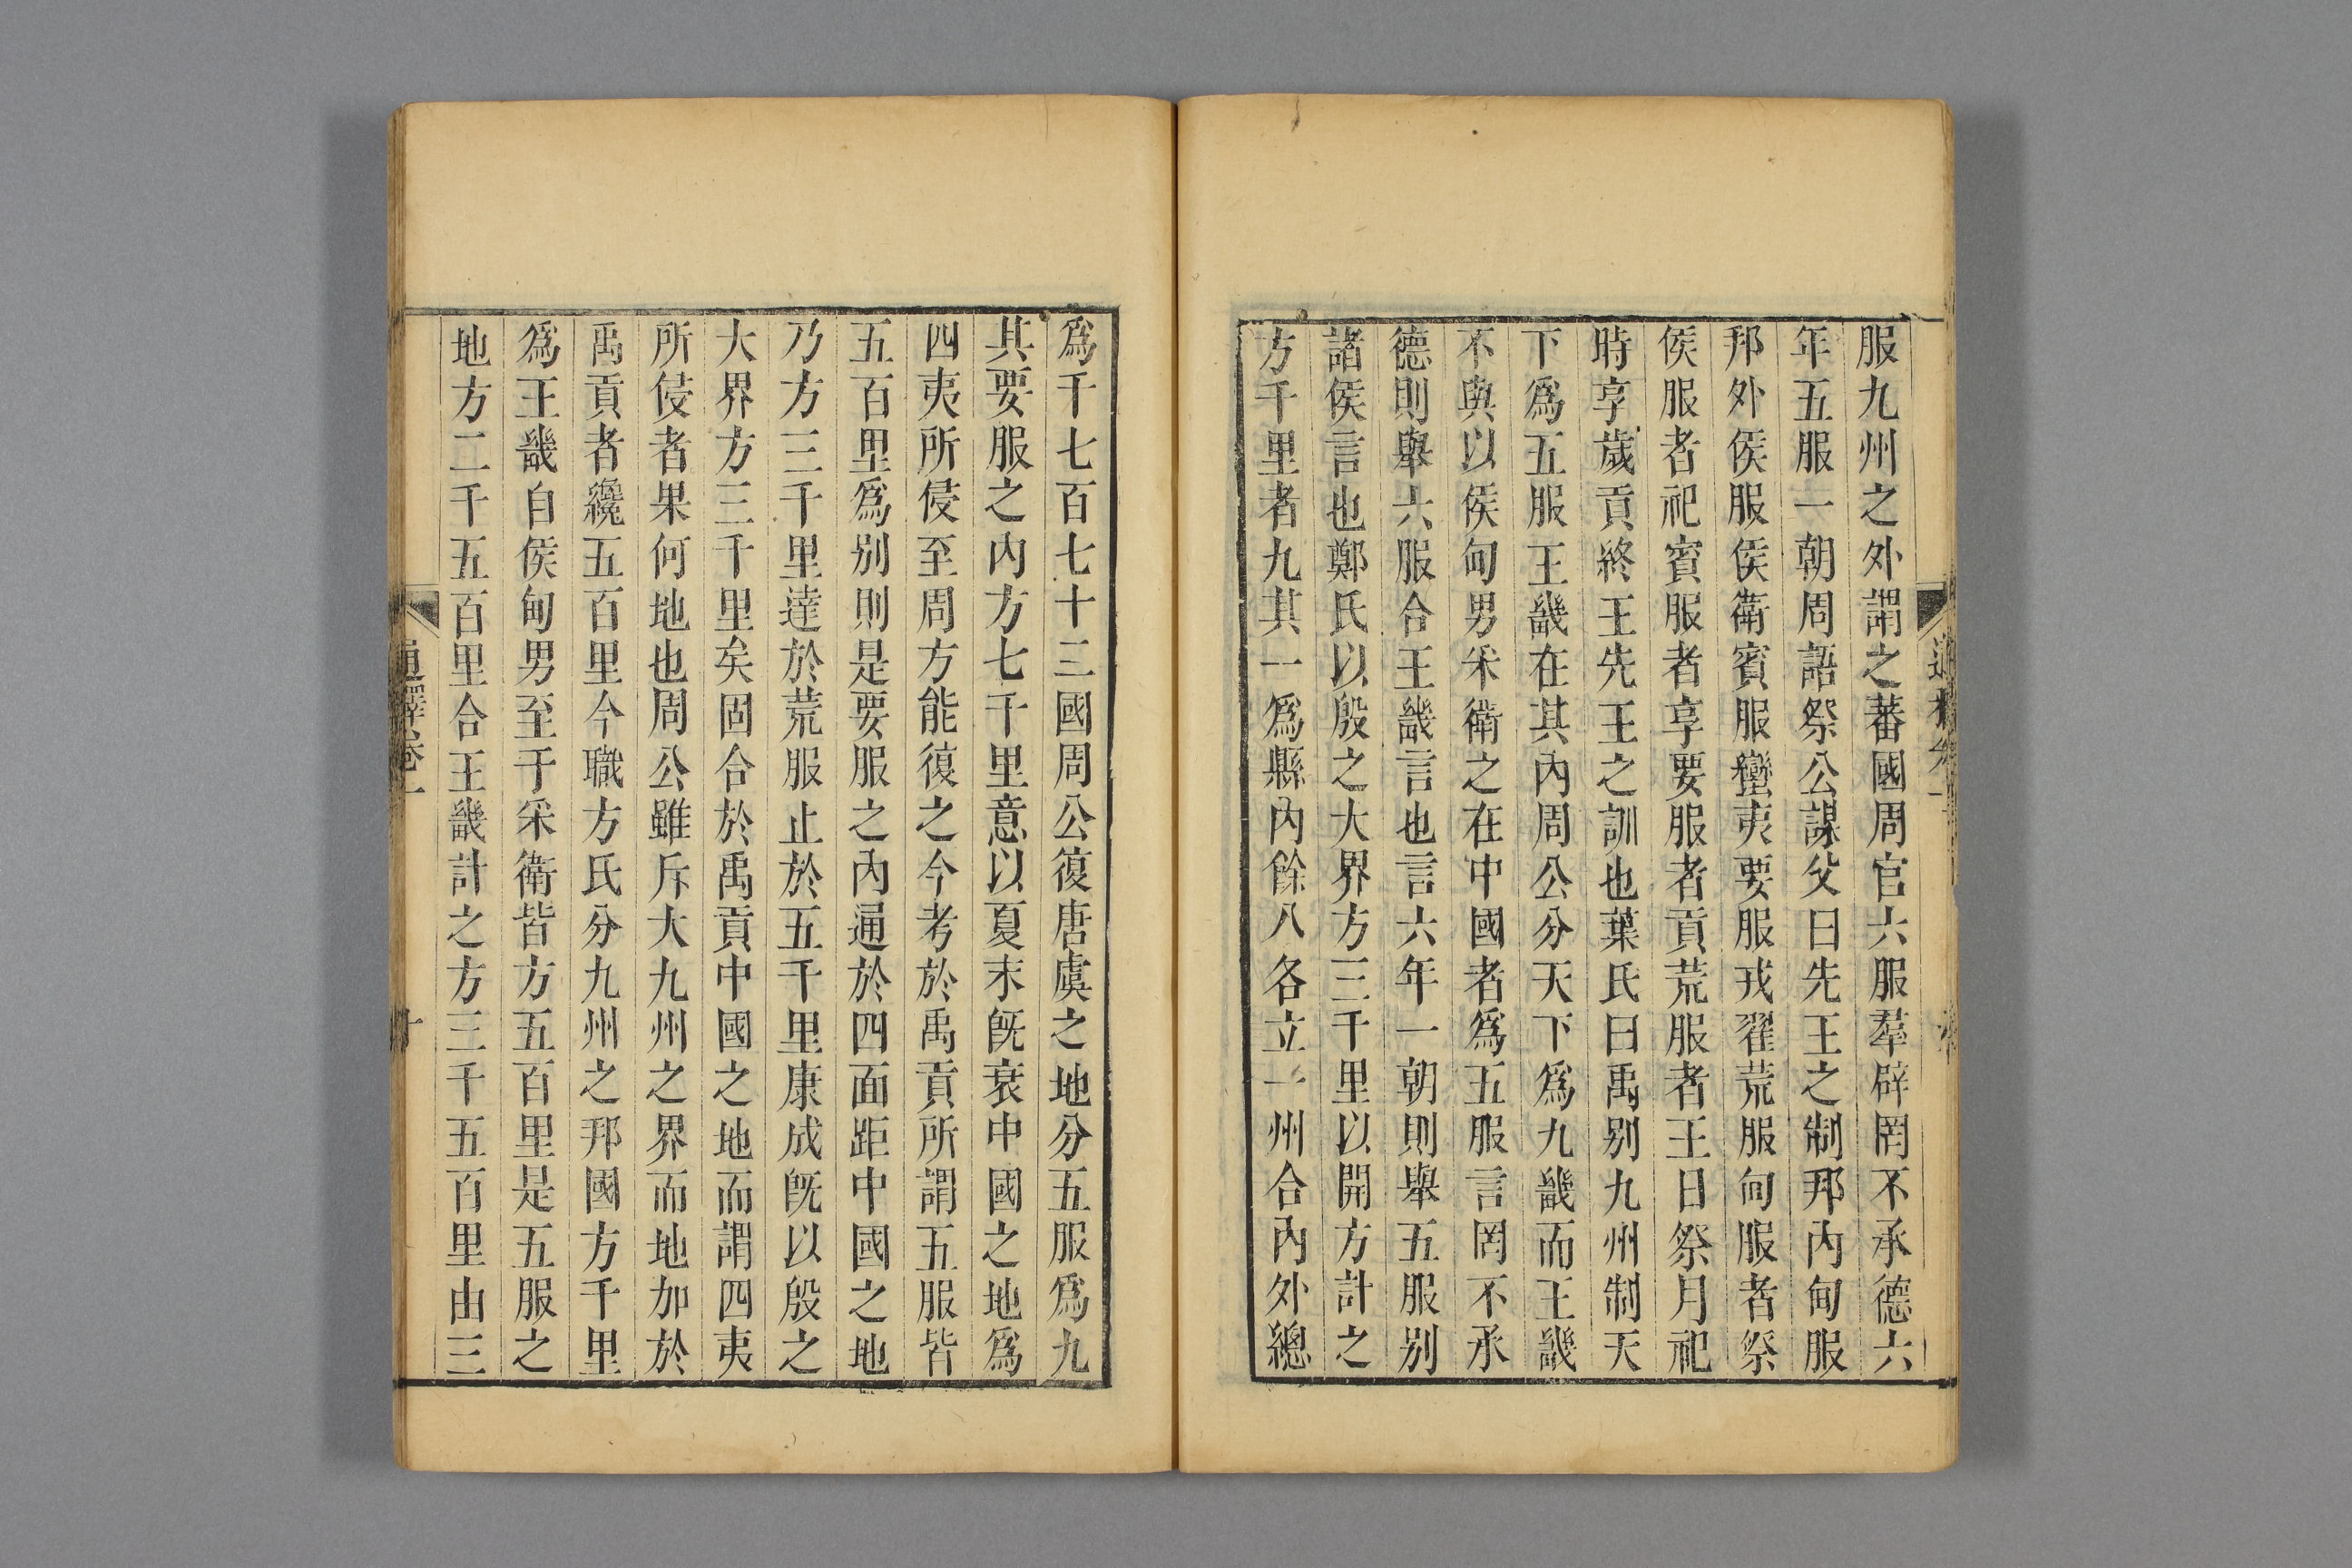 服九州之外謂之蕃國周官六服羣辟罔不承德六
年五服一朝周語祭公謀父曰先王之制邦內甸服
邦外侯服侯衛賓服蠻夷要服戎翟荒服甸服者祭
侯服者祀賓服者享要服者貢荒服者王日祭月祀
時享歲貢終王先王之訓也葉氏曰禹别九州制天
下爲五服王畿在其內周公分天下爲九畿而王畿
不與以侯甸男采衛之在中國者爲五服言罔不承
德則舉六服合王畿言也言六年一朝則舉五服别
諸侯言也鄭氏以殷之大界方三千里以開方計之
方千里者九其一爲縣內餘八各立一州合內外總
爲千七百七十三國周公復唐虞之地分五服爲九
其要服之內方七千里意以夏末旣衰中國之地爲
四夷所侵至周方能復之今考於禹貢所謂五服皆
五百里爲别則是要服之內通於四面距中國之地
乃方三千里達於荒服止於五千里康成旣以殷之
大界方三千里矣固合於禹貢中國之地而謂四夷
所侵者果何地也周公雖斥大九州之界而地加於
禹貢者纔五百里今職方氏分九州之邦國方千里
爲王畿自侯甸男至于采衛皆方五百里是五服之
地方二千五百里合王畿計之方三千五百里由三
通釋卷一
十